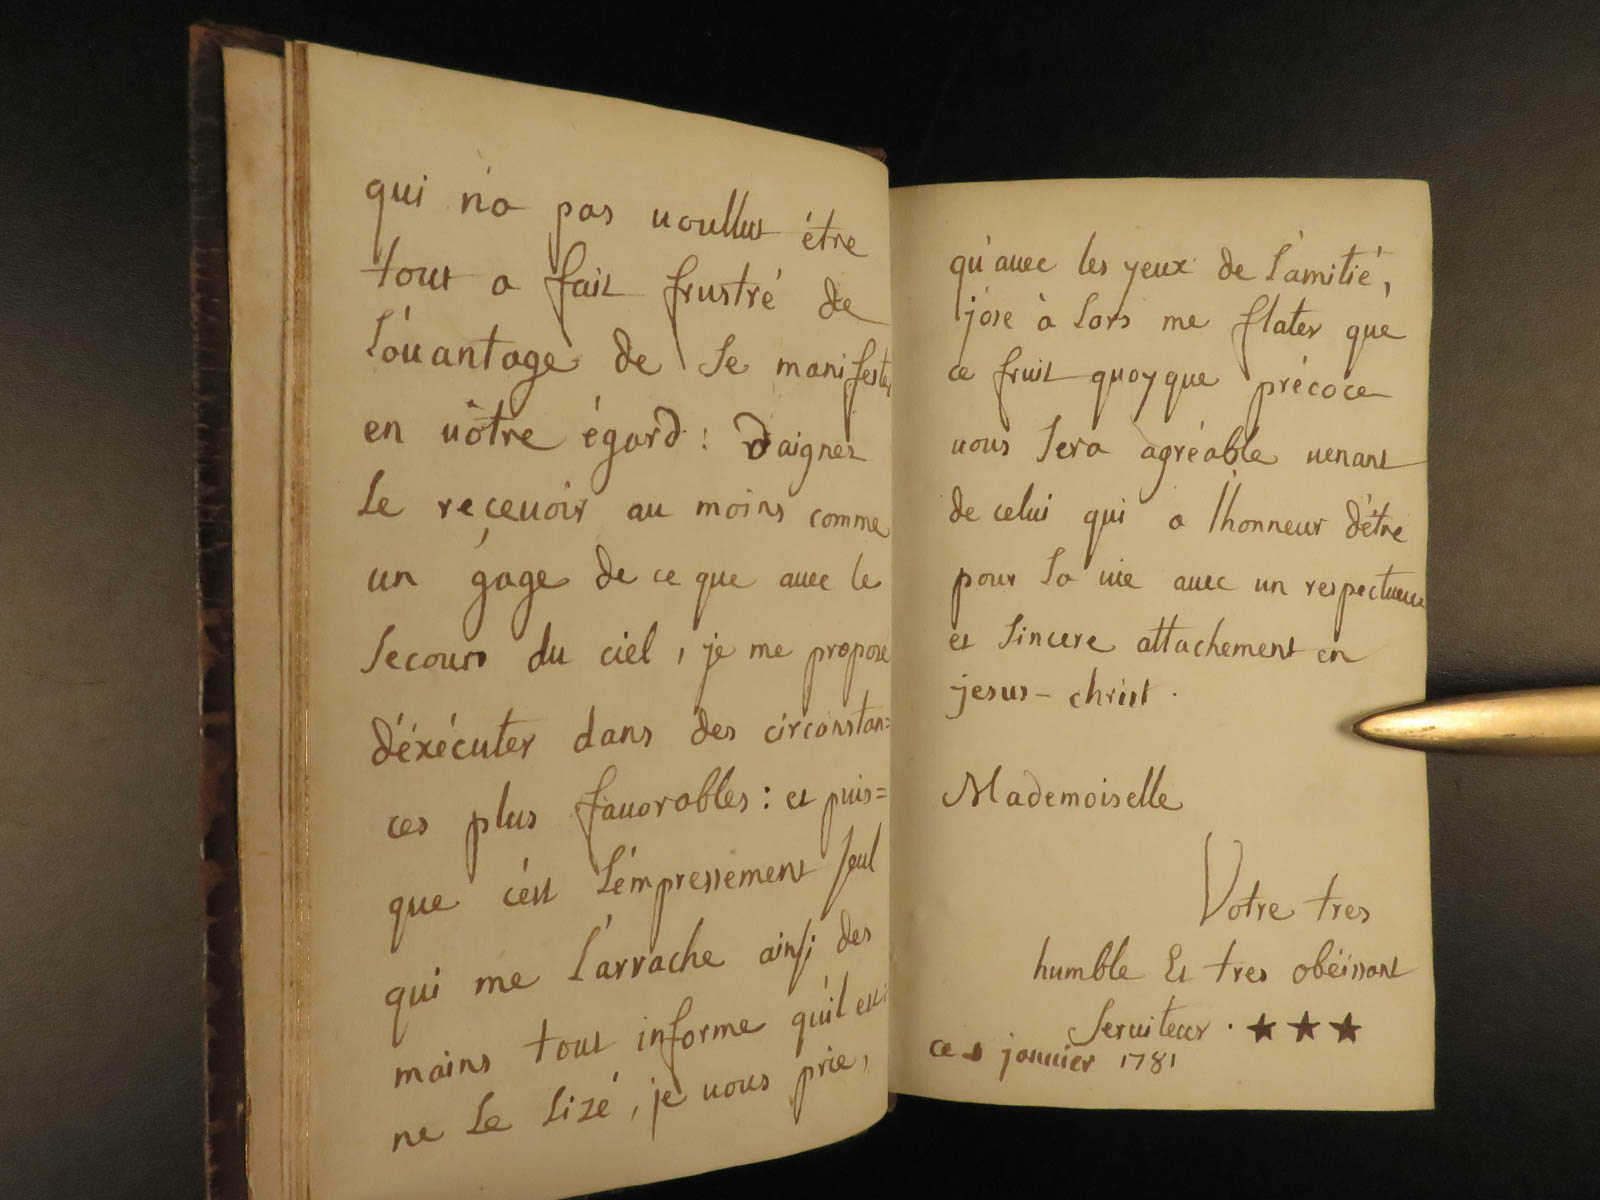 qui n'a pas voullut être
tout a fait frustré de
l'avantage de se manifester
en vôtre égard : daignez
le recevoir au moins comme
un gage de ce que avec le
secours du ciel, je me propose
d'éxécuter dans des circonstan=
ces plus favorables : et puis=
que c'est l'émpressement seul
qui me l'arrache ainsi des
mains tout informe qu'il est :
ne le lizé, je vous prie,
qu'avec les yeux de l'amitié,
j'ose à lors me flater que
ce fruit quoyque précoce
vous sera agréable venant
de celui qui a l'honneur d'être
pour la vie avec un respectueux
et sincere attachement en
jesus-christ.
Mademoiselle
Votre tres
humble Et tres obéissant
serviteur. ★★★
ce janvier 1781